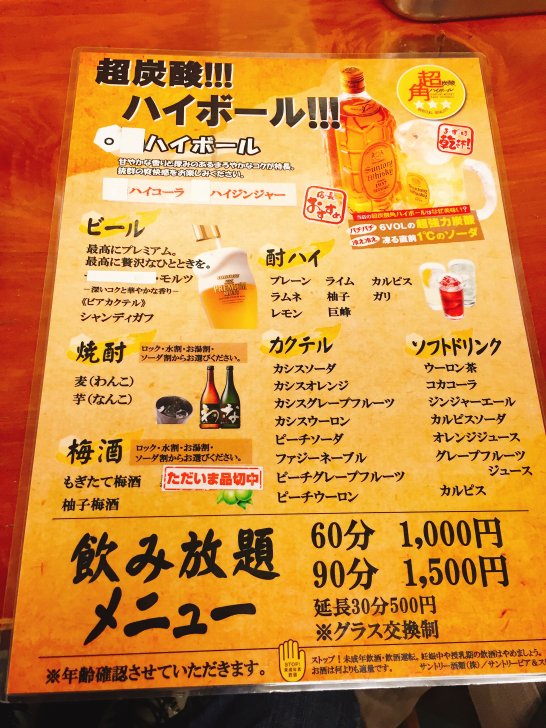 超炭酸!!!
ハイボール!!!
超炭酸
角ハイボール
ハイボール
甘やかな香りと厚みのあるまろやかなコクが特長。
抜群の爽快感をお楽しみください。
ハイコーラ ハイジンジャー
店長おすすめ
まずは乾杯!
Suntory
Whisky
1937
当店の超炭酸角ハイボールはなぜ美味い?
バチバチ 6VOLの超強力炭酸
冷え冷え 凍る直前1℃のソーダ
ビール
最高にプレミアム。
最高に贅沢なひとときを。
・モルツ
−深いコクと華やかな香り−
《ビアカクテル》
シャンディガフ
PREMIUM
酎ハイ
プレーン ライム カルピス
ラムネ 柚子 ガリ
レモン 巨峰
焼酎
ロック・水割・お湯割・
ソーダ割からお選びください。
麦(わんこ)
芋(なんこ)
わ
な
梅酒
ロック・水割・お湯割・
ソーダ割からお選びください。
もぎたて梅酒
ただいま品切中
柚子梅酒
カクテル
カシスソーダ
カシスオレンジ
カシスグレープフルーツ
カシスウーロン
ピーチソーダ
ファジーネーブル
ピーチグレープフルーツ
ピーチウーロン
ソフトドリンク
ウーロン茶
コカコーラ
ジンジャーエール
カルピスソーダ
オレンジジュース
グレープフルーツ
ジュース
カルピス
飲み放題
メニュー
60分 1,000円
90分 1,500円
延長30分500円
※グラス交換制
※年齢確認させていただきます。
STOP!
未成年者
飲酒
ストップ!未成年飲酒・飲酒運転。妊娠中や授乳期の飲酒はやめましょう。
お酒は何よりも適量です。 サントリー酒類(株)/サントリービア&ス